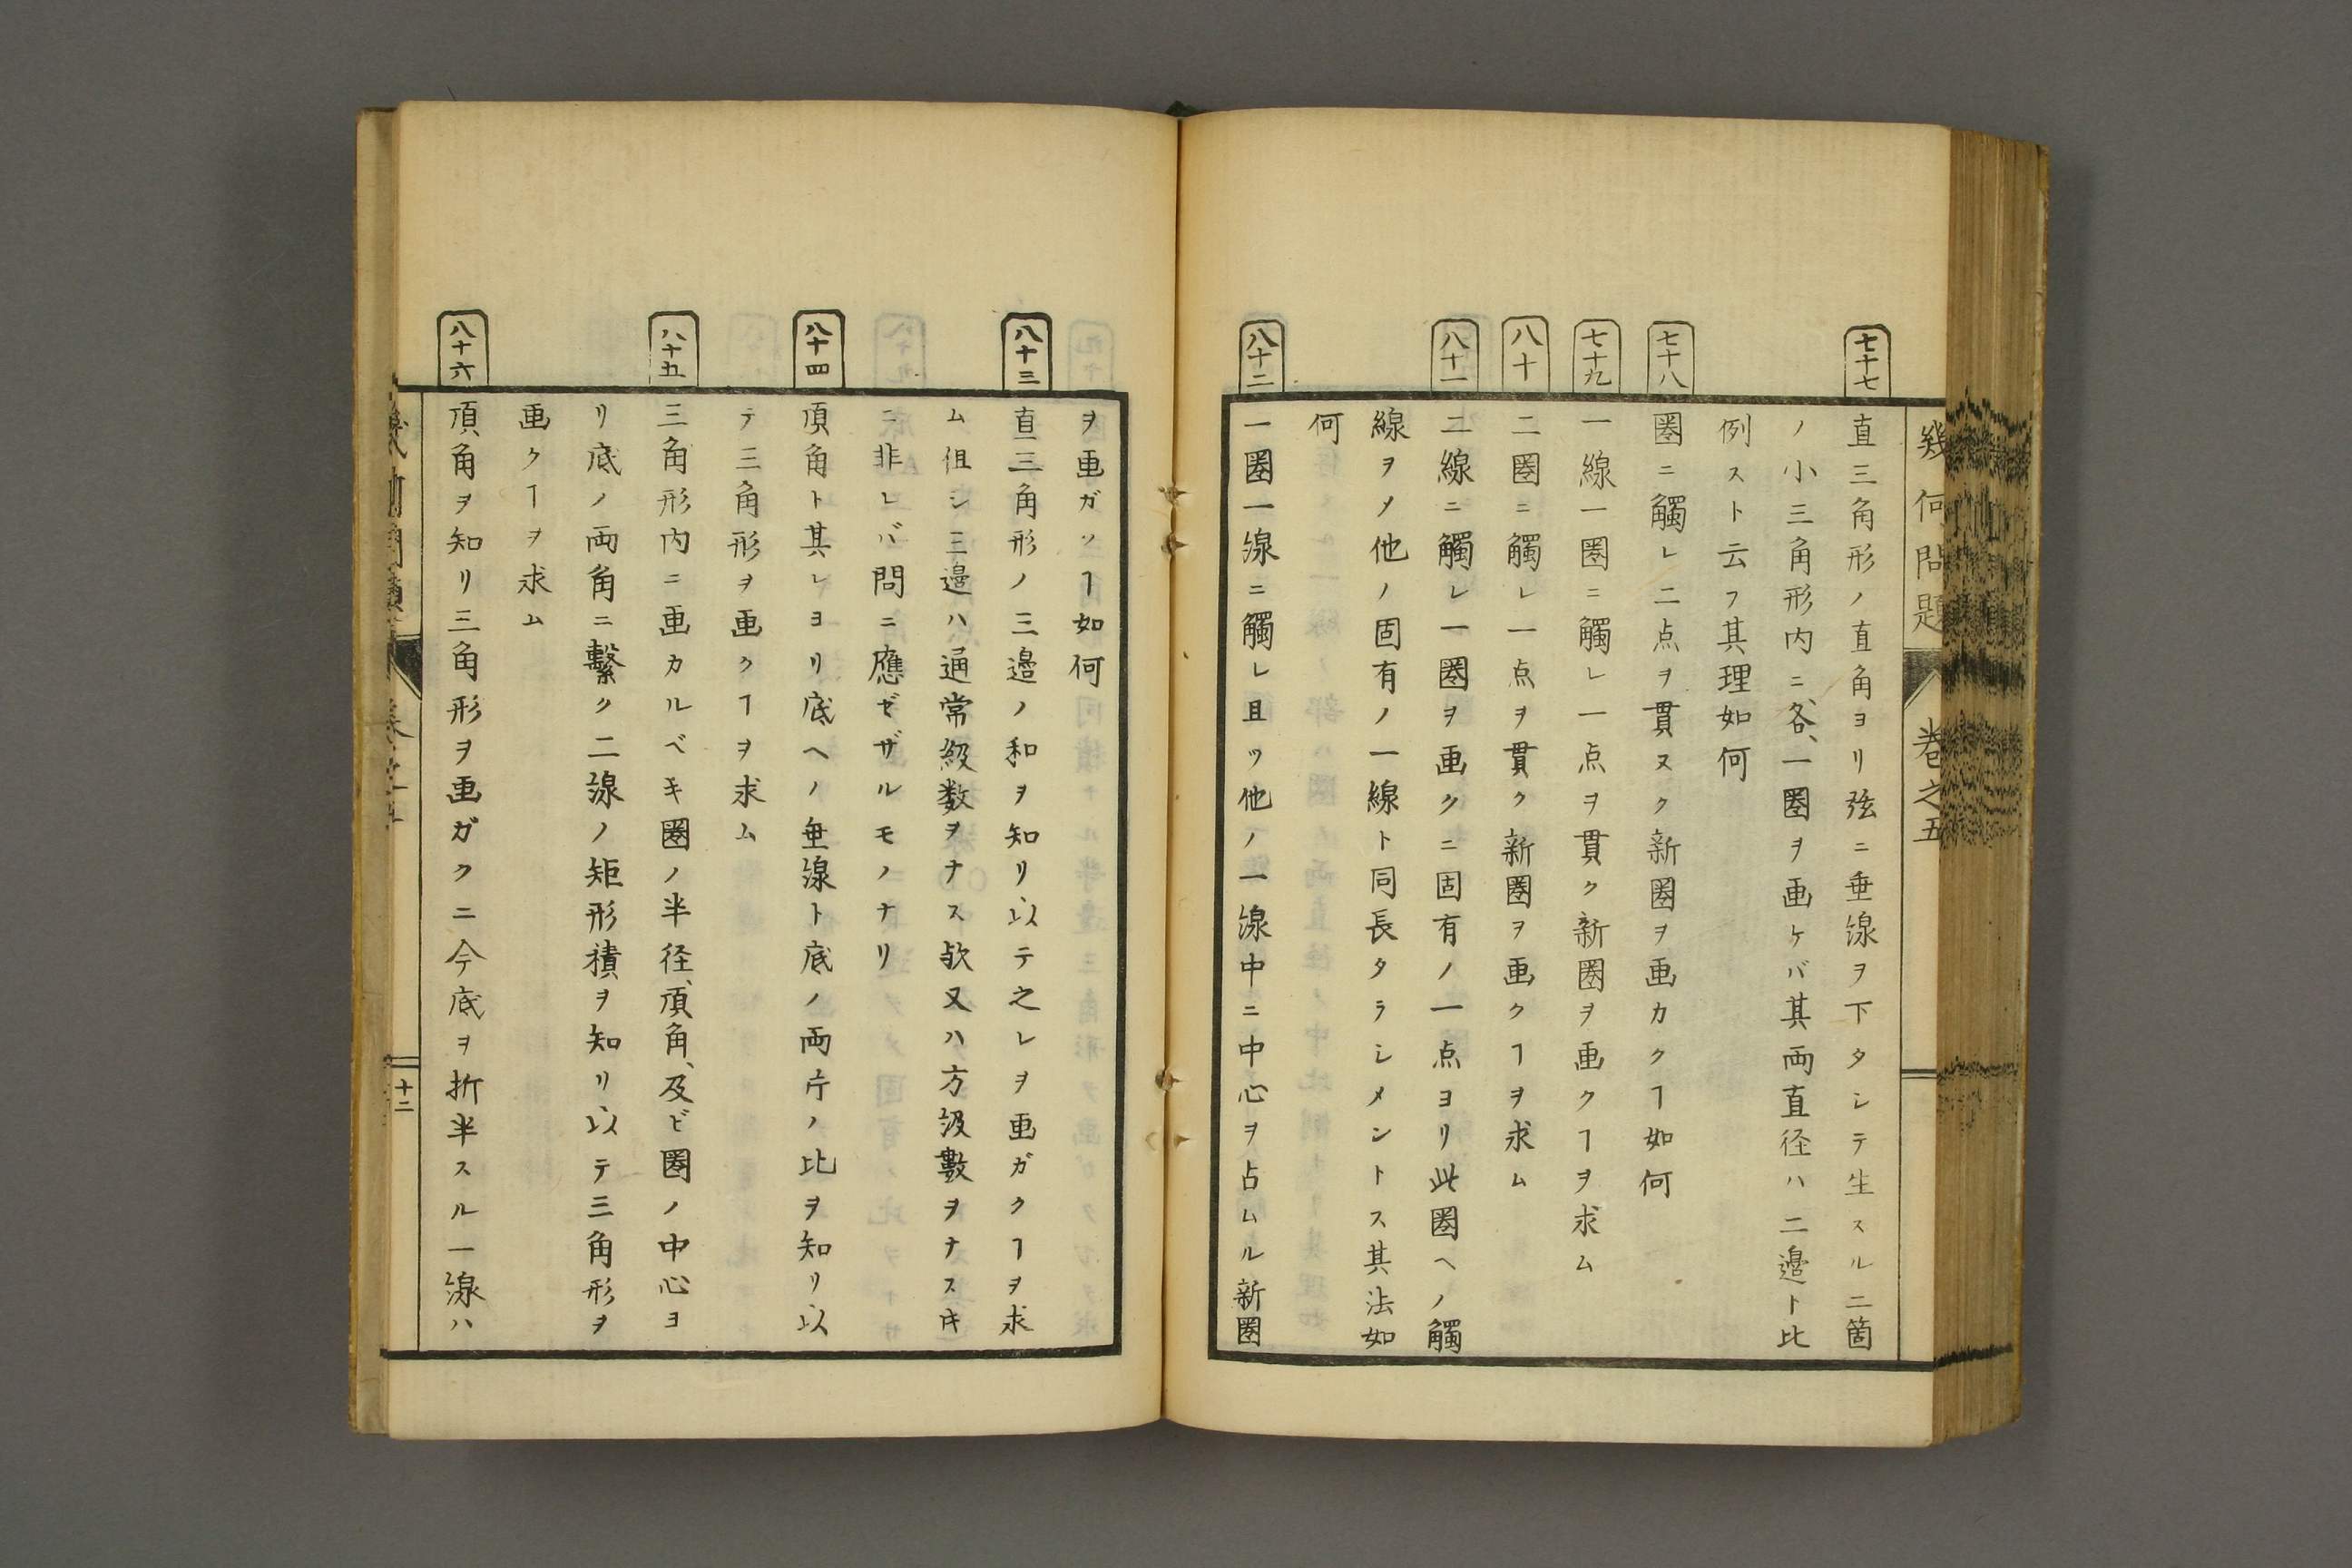 幾何問題 巻之五
七十七
直三角形ノ直角ヨリ弦ニ垂線ヲ下タシテ生スル二箇
ノ小三角形内ニ、各、一圏ヲ画ケバ其両直径ハ二邉ト比
例スト云フ其理如何
七十八
圏ニ觸レ二点ヲ貫ヌク新圏ヲ画カクヿ如何
七十九
一線一圏ニ觸レ一点ヲ貫ク新圏ヲ画クヿヲ求ム
八十
二圏ニ觸レ一点ヲ貫ク新圏ヲ画クヿヲ求ム
八十一
二線ニ觸レ一圏ヲ画クニ固有ノ一点ヨリ此圏ヘノ觸
線ヲメ他ノ固有ノ一線ト同長タラシメントス其法如
何
八十二
一圏一線ニ觸レ且ツ他ノ一線中ニ中心ヲ占ムル新圏
ヲ画ガクヿ如何
八十三
直三角形ノ三邉ノ和ヲ知リ以テ之レヲ画ガクヿヲ求
ム伹シ三邉ハ通常級数ヲナス欤又ハ方級數ヲナスキ
ニ非レバ問ニ應ゼザルモノナリ
八十四
頂角ト其レヨリ底ヘノ垂線ト底ノ両片ノ比ヲ知リ以
テ三角形ヲ画クヿヲ求ム
八十五
三角形内ニ画カルベキ圏ノ半径、頂角、及ビ圏ノ中心ヨ
リ底ノ両角ニ繫ク二線ノ矩形積ヲ知リ以テ三角形ヲ
画クヿヲ求ム
八十六
頂角ヲ知リ三角形ヲ画ガクニ今底ヲ折半スル一線ハ
十二